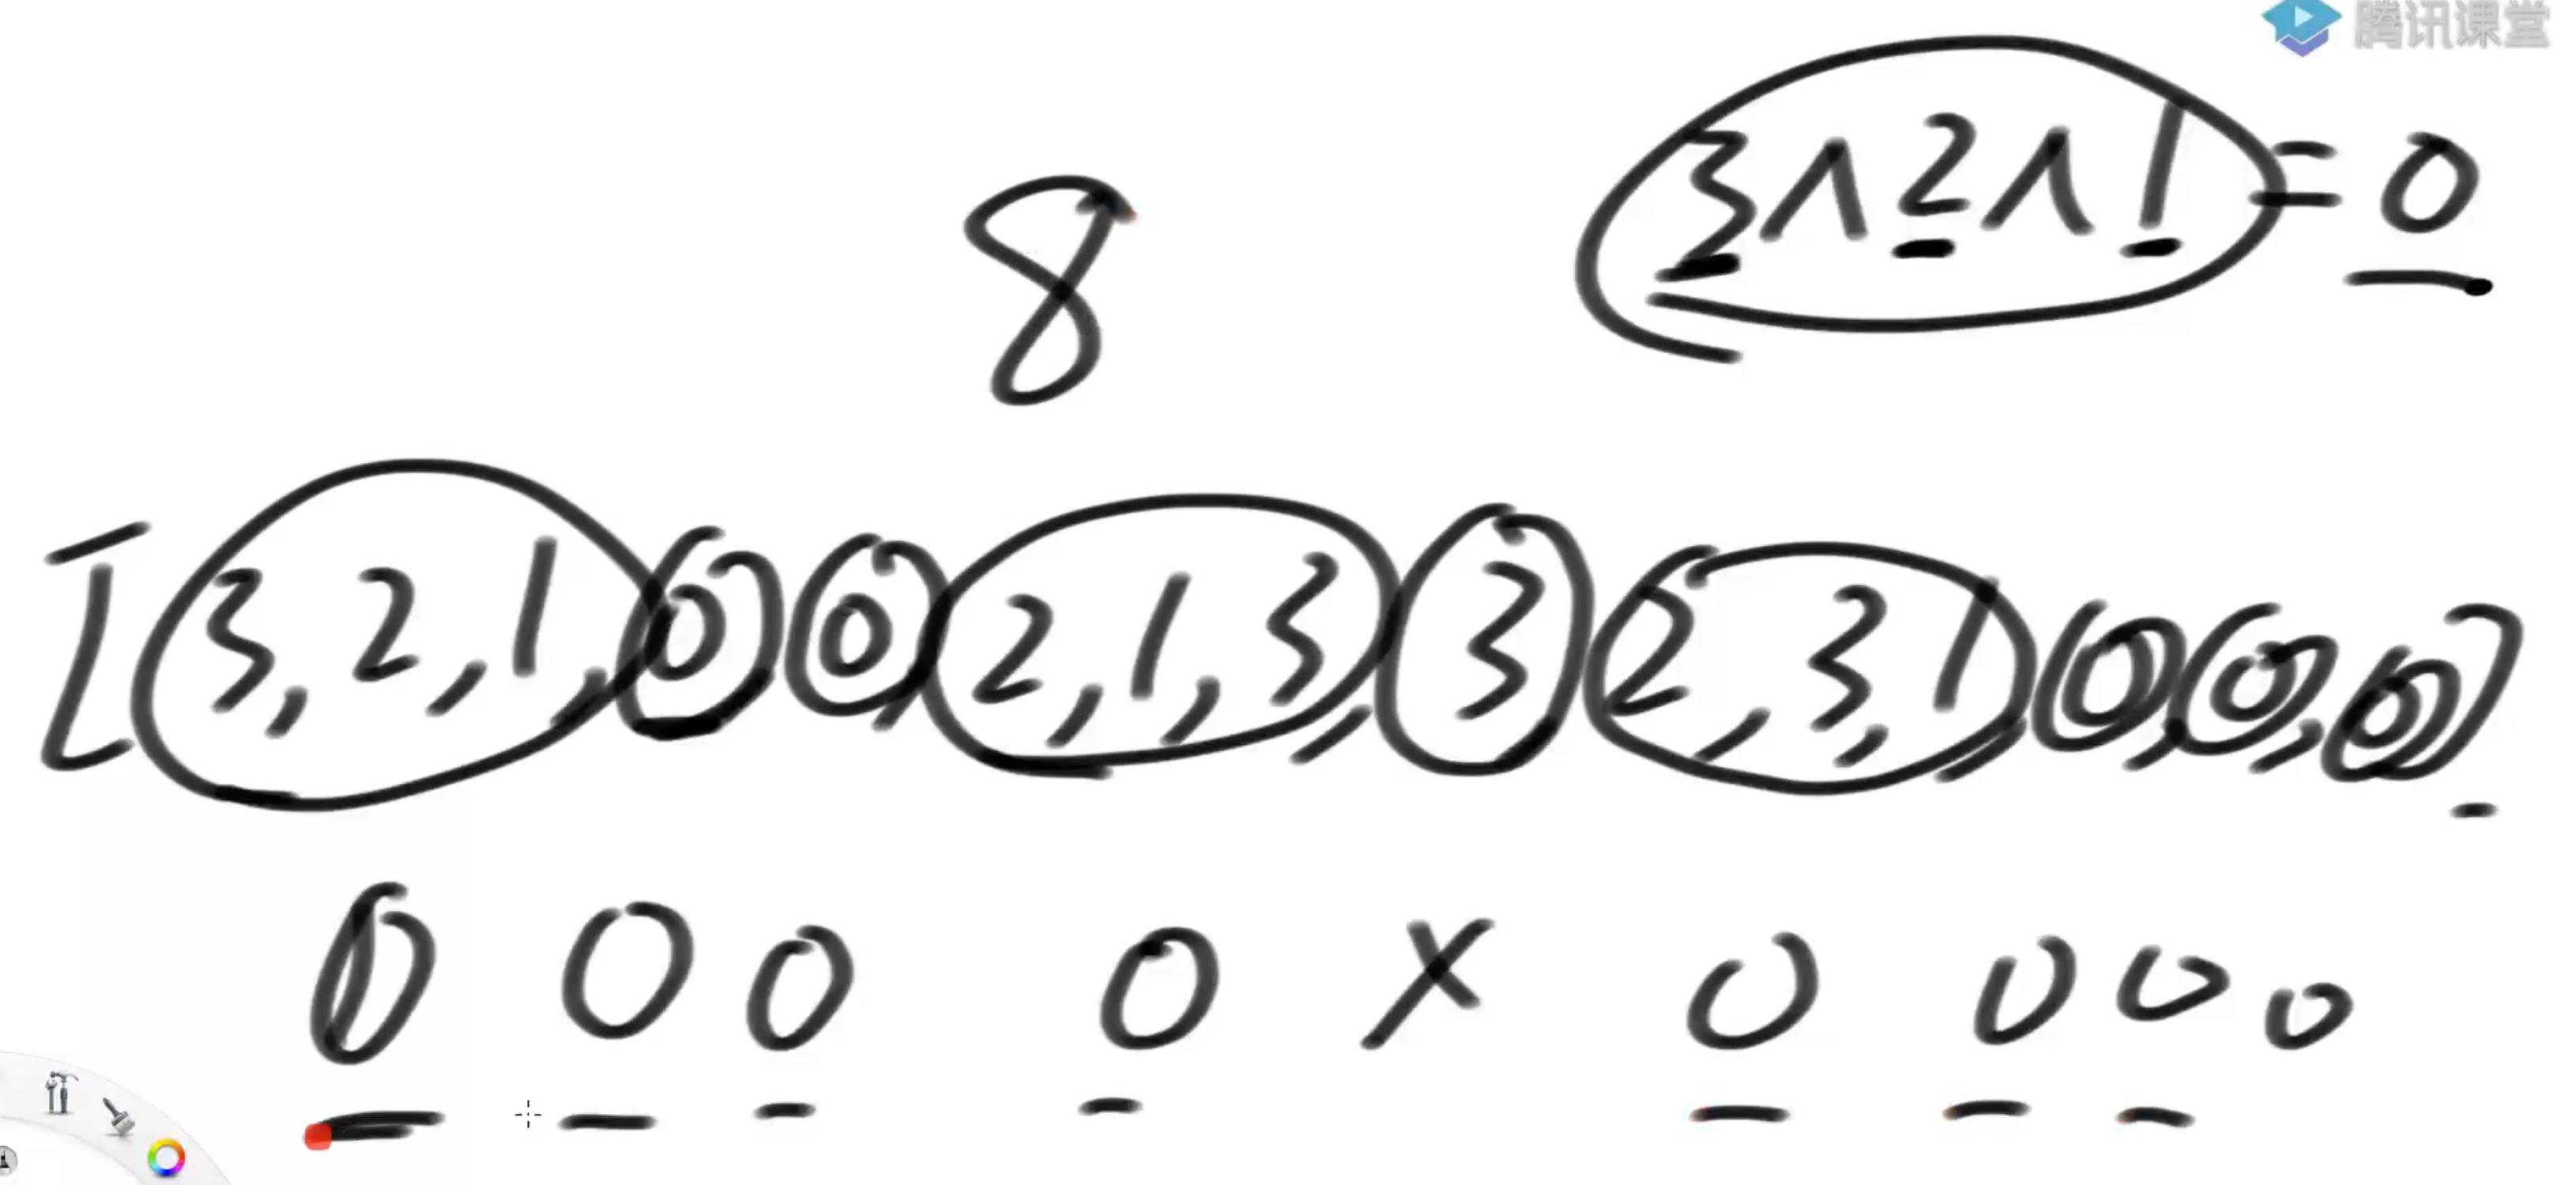 腾讯课堂
3∧2∧1=0
8
[3,2,1,0 0,2,1,3,3 2,3,1,0,0,0]
0 0 0 0 X 0 0 0 0